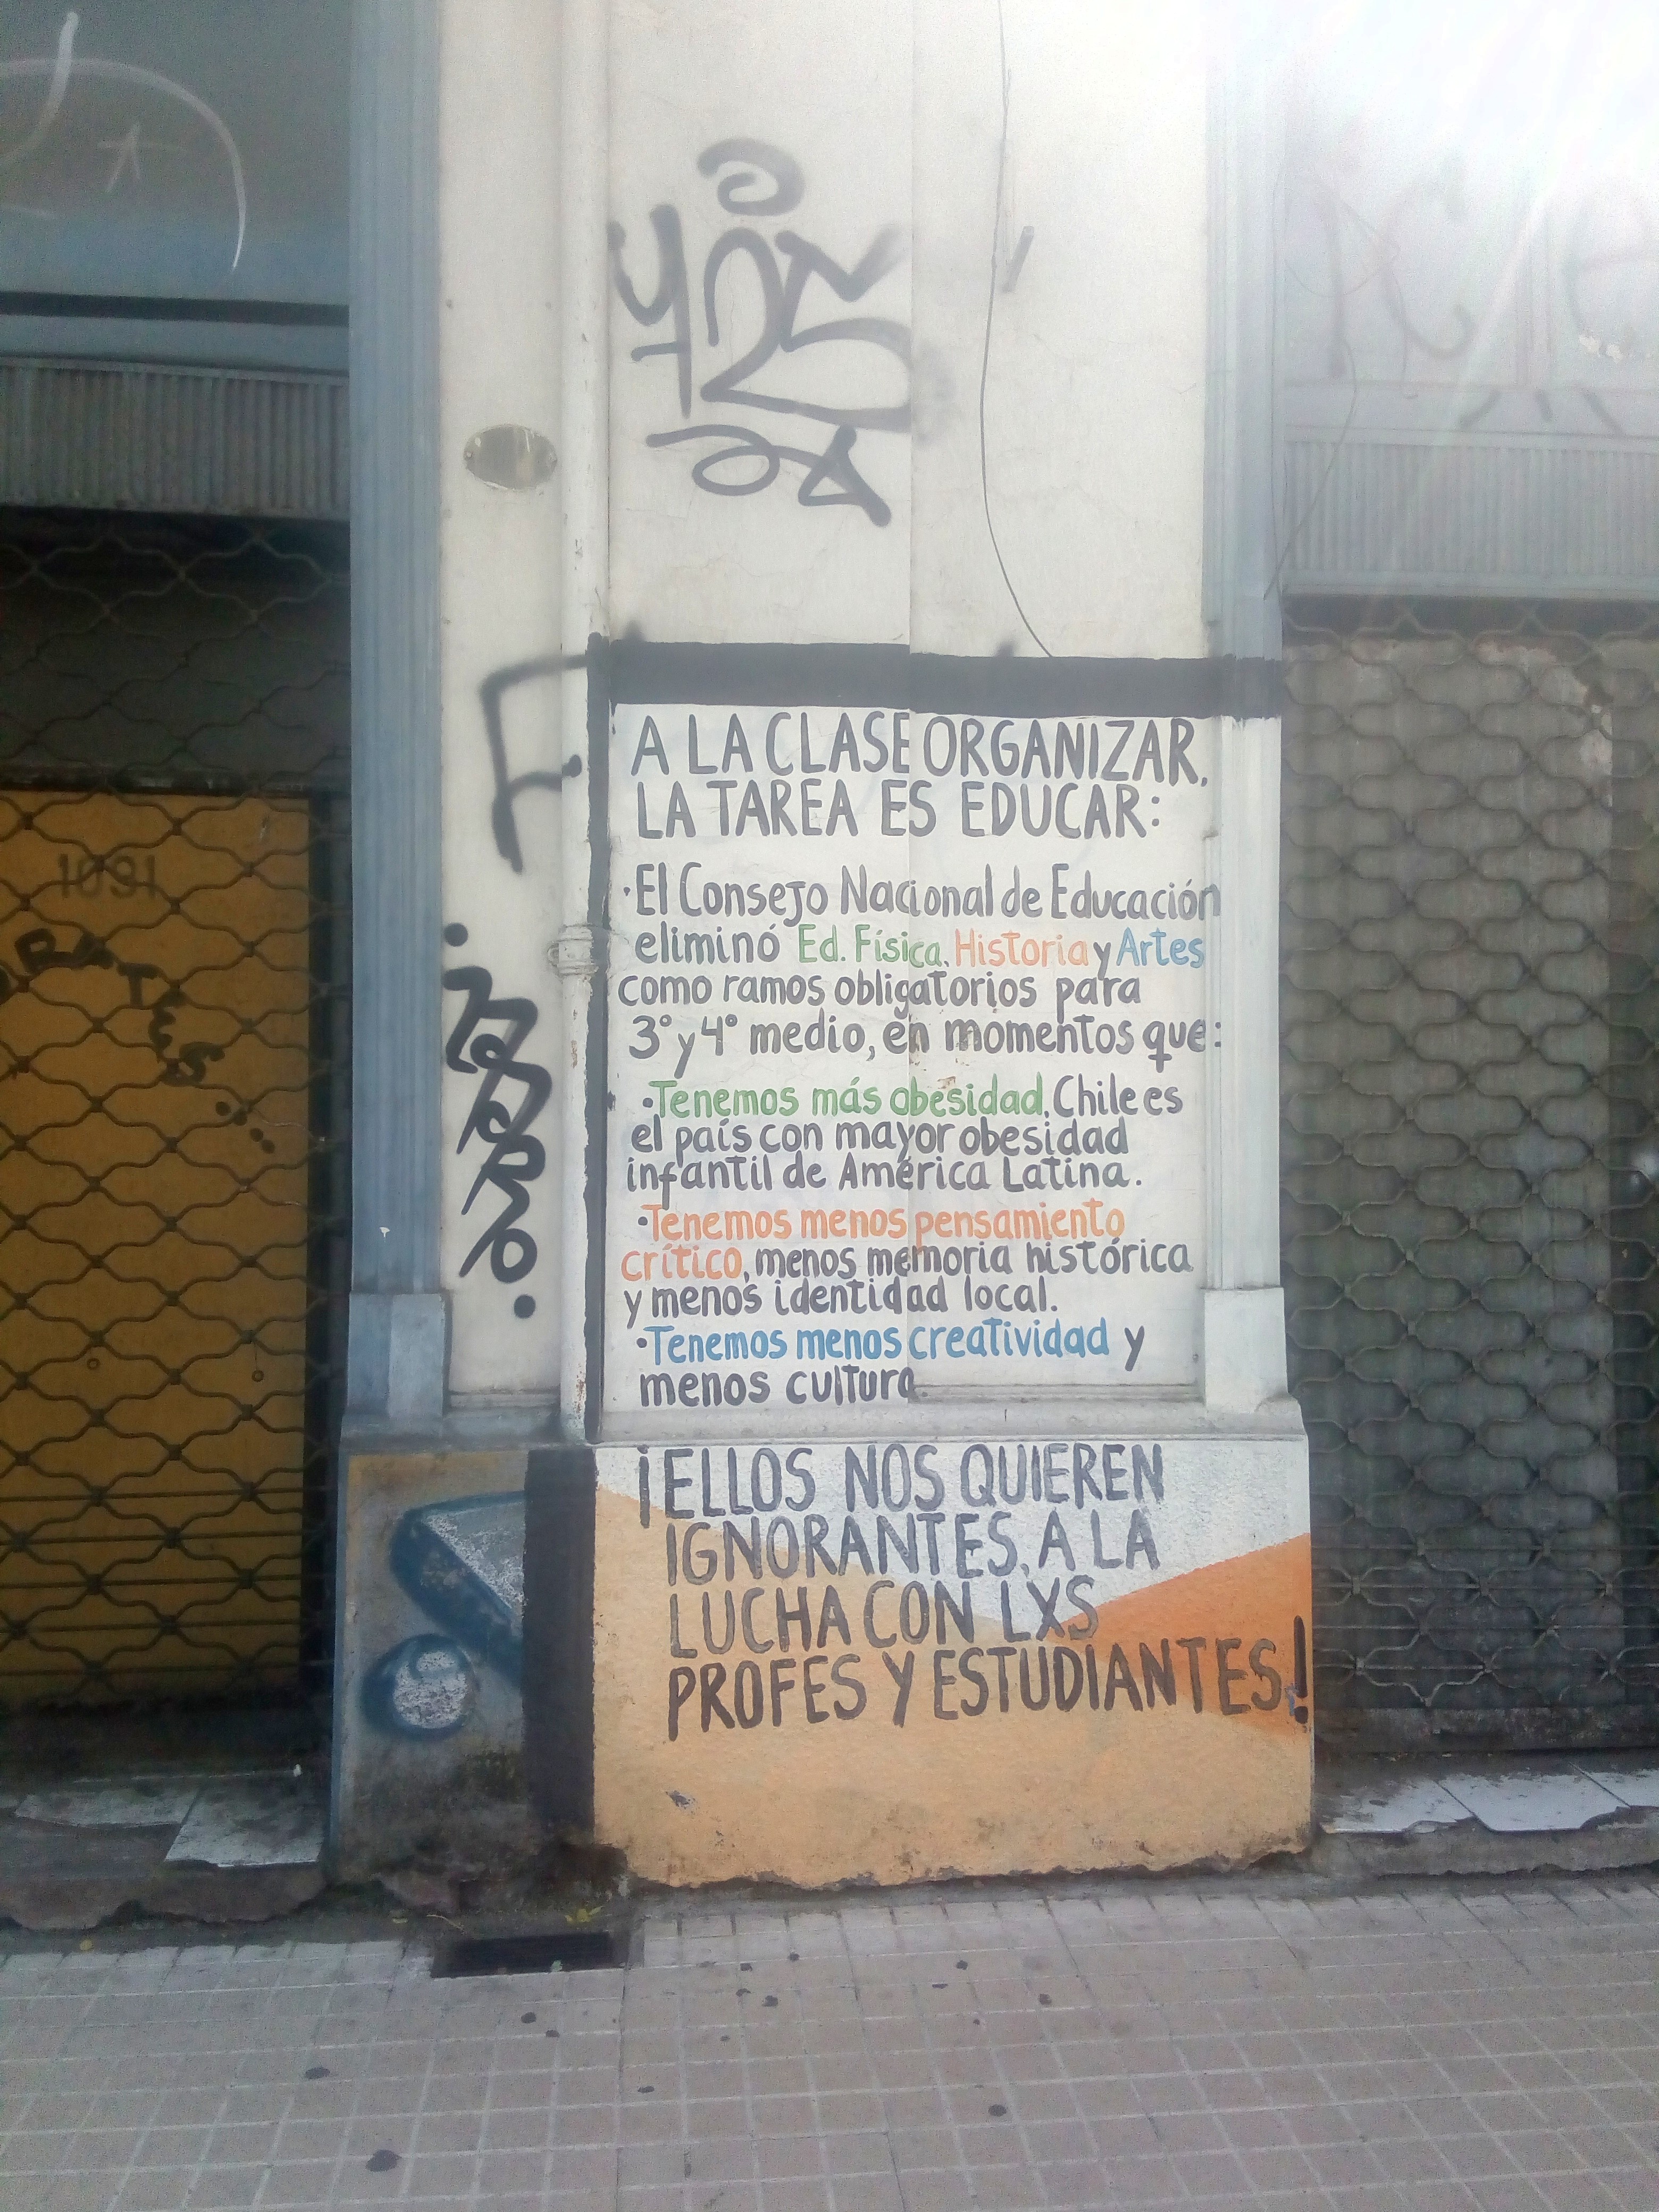 A LA CLASE ORGANIZAR,
LA TAREA ES EDUCAR:
·El Consejo Nacional de Educación
eliminó Ed. Física, Historia y Artes
como ramos obligatorios para
3° y 4° medio, en momentos que:
·Tenemos más obesidad, Chile es
el país con mayor obesidad
infantil de América Latina.
·Tenemos menos pensamiento
crítico, menos memoria histórica
y menos identidad local.
·Tenemos menos creatividad y
menos cultura.
¡ELLOS NOS QUIEREN
IGNORANTES, A LA
LUCHA CON LXS
PROFES Y ESTUDIANTES!
1091